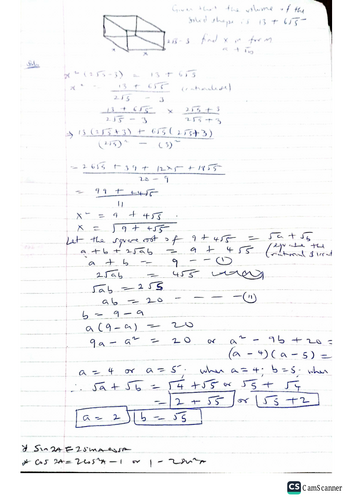 Given that the volume of the
solid shape is 13 + 6√5
2√5 - 3 find x in form
x x
Sol
x²(2√5 - 3) = 13 + 6√5
x² = 13 + 6√5
2√5 - 3
13 + 6√5 × 2√5 + 3
2√5 - 3 2√5 + 3
⇒ 13(2√5+3) + 6√5(2√5+3)
(2√5)² - (3)²
= 26√5 + 39 + 12×5 + 18√5
20 - 9
= 99 + 44√5
11
x² = 9 + 4√5
x = √9 + 4√5
Let the square root of 9 + 4√5 = √a + √b
a + b + 2√ab = 9 + 4√5
a + b = 9 - - (1)
2√ab = 4√5
√ab = 2√5
ab = 20 - - - - - (11)
b = 9 - a
a(9 - a) = 20
9a - a² = 20 or a² - 9b + 20 =
(a - 4)(a - 5) =
a = 4 or a = 5; when a = 4; b = 5; when
∴ √a + √b = √4 + √5 or √5 + √4
= 2 + √5 or √5 + 2
a = 2 b = √5
Sin2A = 2sinAcosA
Cos 2A = 2cos²A - 1 or 1 - 2sin²A
CS CamScanner